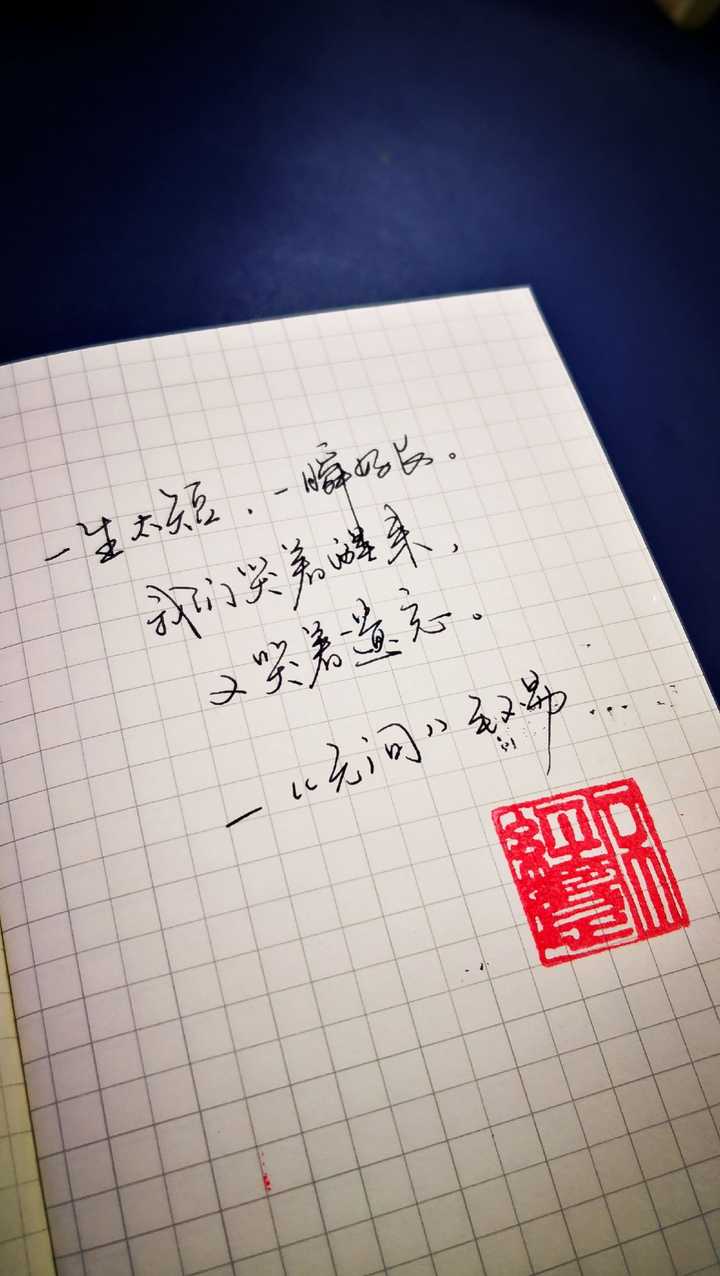 一生太短.一瞬好长。
我们哭着醒来,
又哭着遗忘。
—“无问”毛不易……